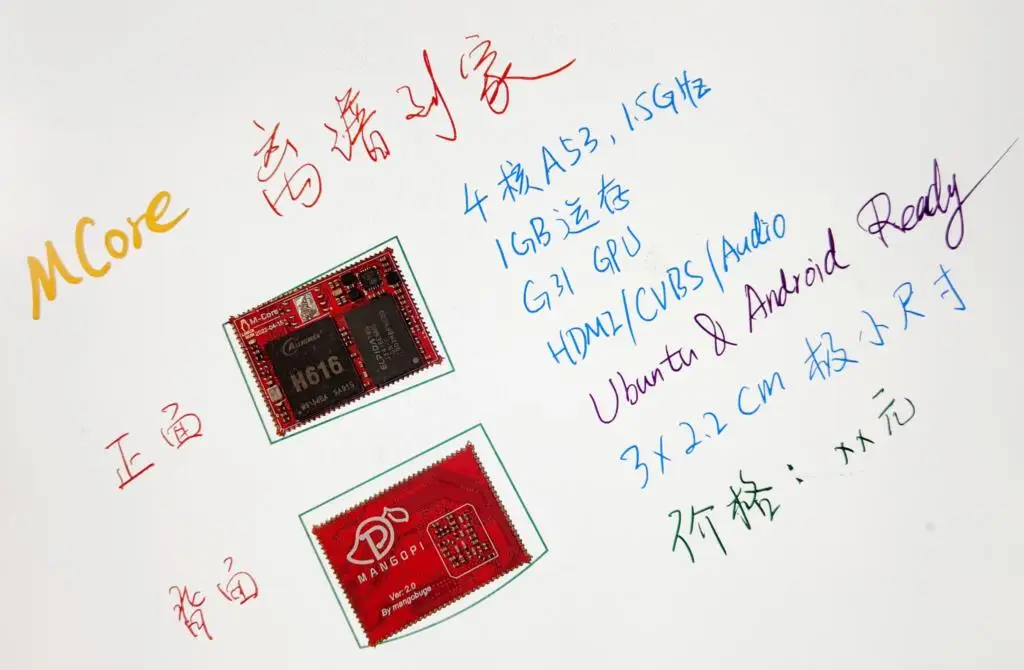 离谱到家
MCore
4核A53, 1.5GHz
1GB运存
G31 GPU
HDMI/CVBS/Audio
Ubuntu & Android Ready
3x2.2cm 极小尺寸
价格: xx元
正面
M-Core
ALLWINNER
H616
ELPIDA
背面
MANGOPI
Ver: 2.0
By mangobuge